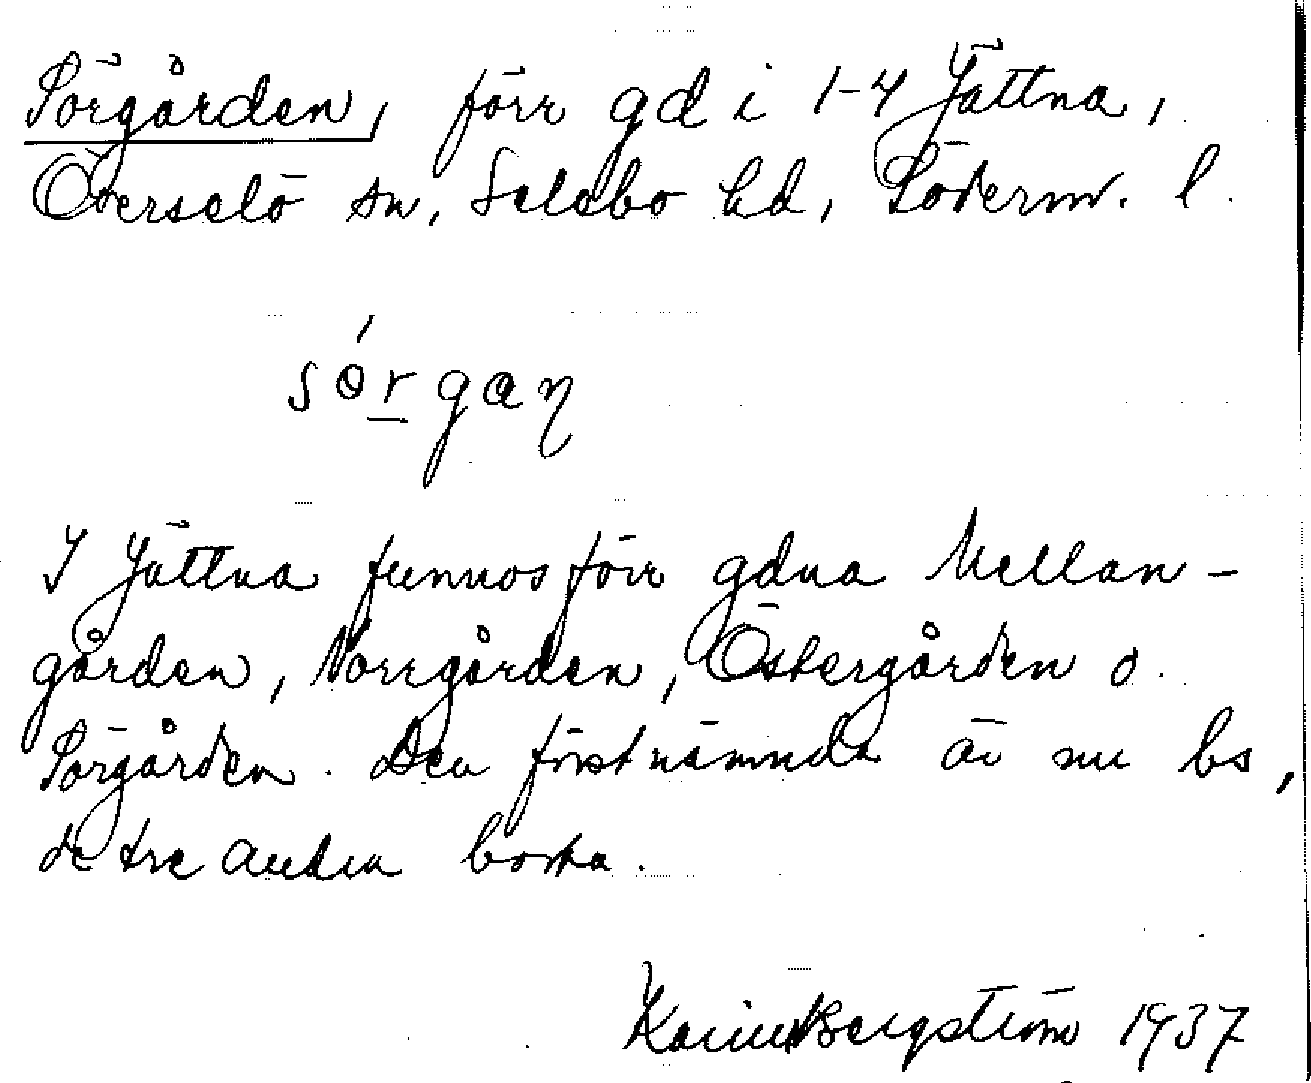 Sörgården, förr gd i 1-4 Jättna,
Överselö sn, Selebo hd, Söderm. l.
sǿrgaŋ
I Jättna funnos förr gdna Mellan-
gården, Norrgården, Östergården o.
Sörgården. Den förstnämnda är nu bs,
de tre andra borta.
Karin Bergström 1937